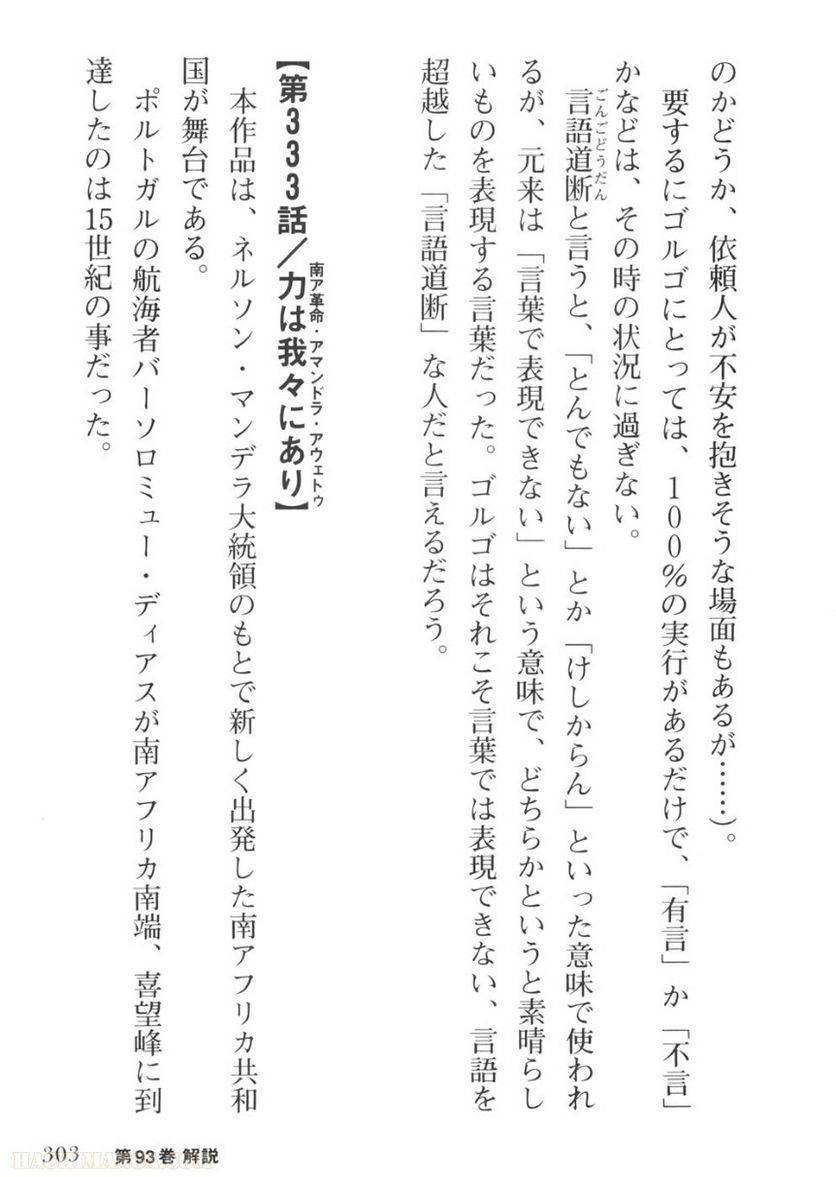 のかどうか、依頼人が不安を抱きそうな場面もあるが……)。
要するにゴルゴにとっては、100%の実行があるだけで、「有言」か「不言」
かなどは、その時の状況に過ぎない。
言語道断と言うと、「とんでもない」とか「けしからん」といった意味で使われ
ごんごどうだん
るが、元来は「言葉で表現できない」という意味で、どちらかというと素晴らし
いものを表現する言葉だった。ゴルゴはそれこそ言葉では表現できない、言語を
超越した「言語道断」な人だと言えるだろう。
【第333話/力は我々にあり】
南ア革命・アマンドラ・アウェトゥ
本作品は、ネルソン・マンデラ大統領のもとで新しく出発した南アフリカ共和
国が舞台である。
ポルトガルの航海者バーソロミュー・ディアスが南アフリカ南端、喜望峰に到
達したのは15世紀の事だった。
303 第93巻 解説